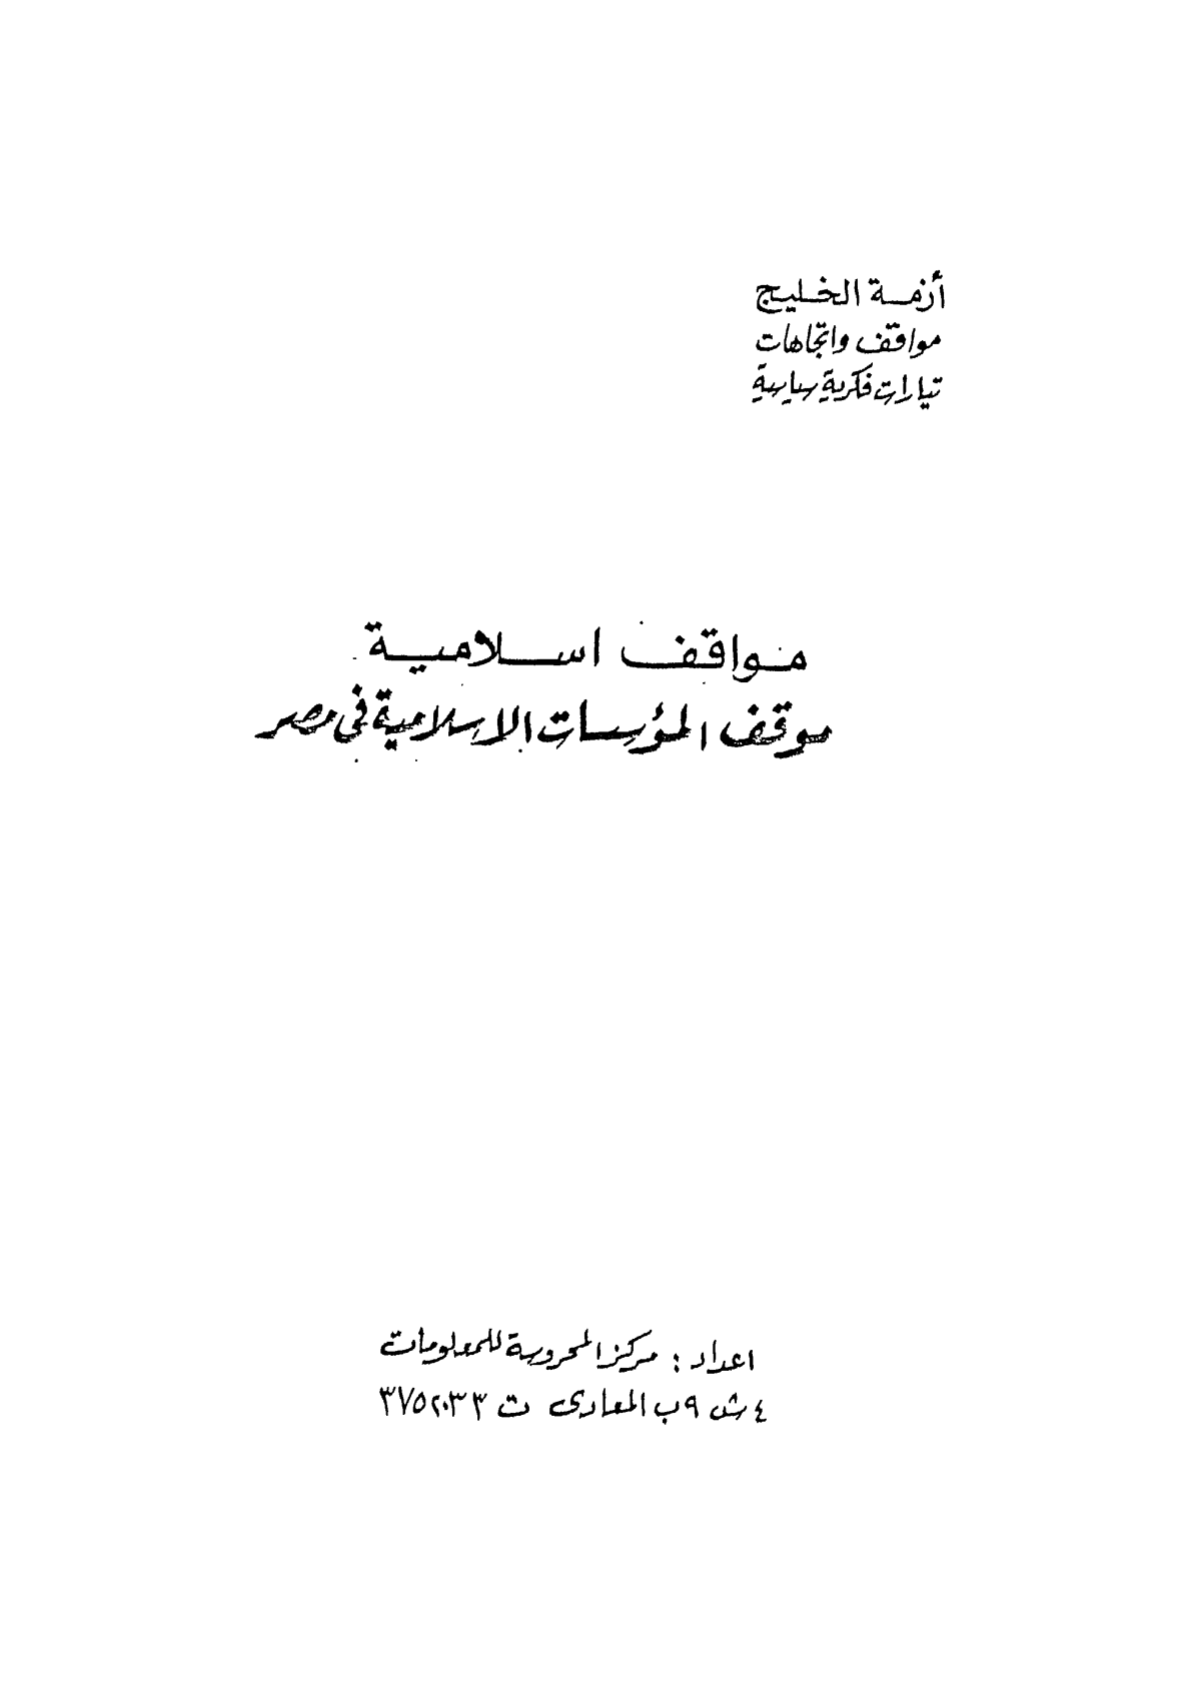 أزمة الخليج
مواقف واتجاهات
تيارات فكرية سياسية
مواقف اسلامية
موقف المؤسسات الاسلامية فى مصر
اعداد : مركز المحروسة للمعلومات
٤ ش ٩ب المعادى ت ٣٧٥٢٠٣٣